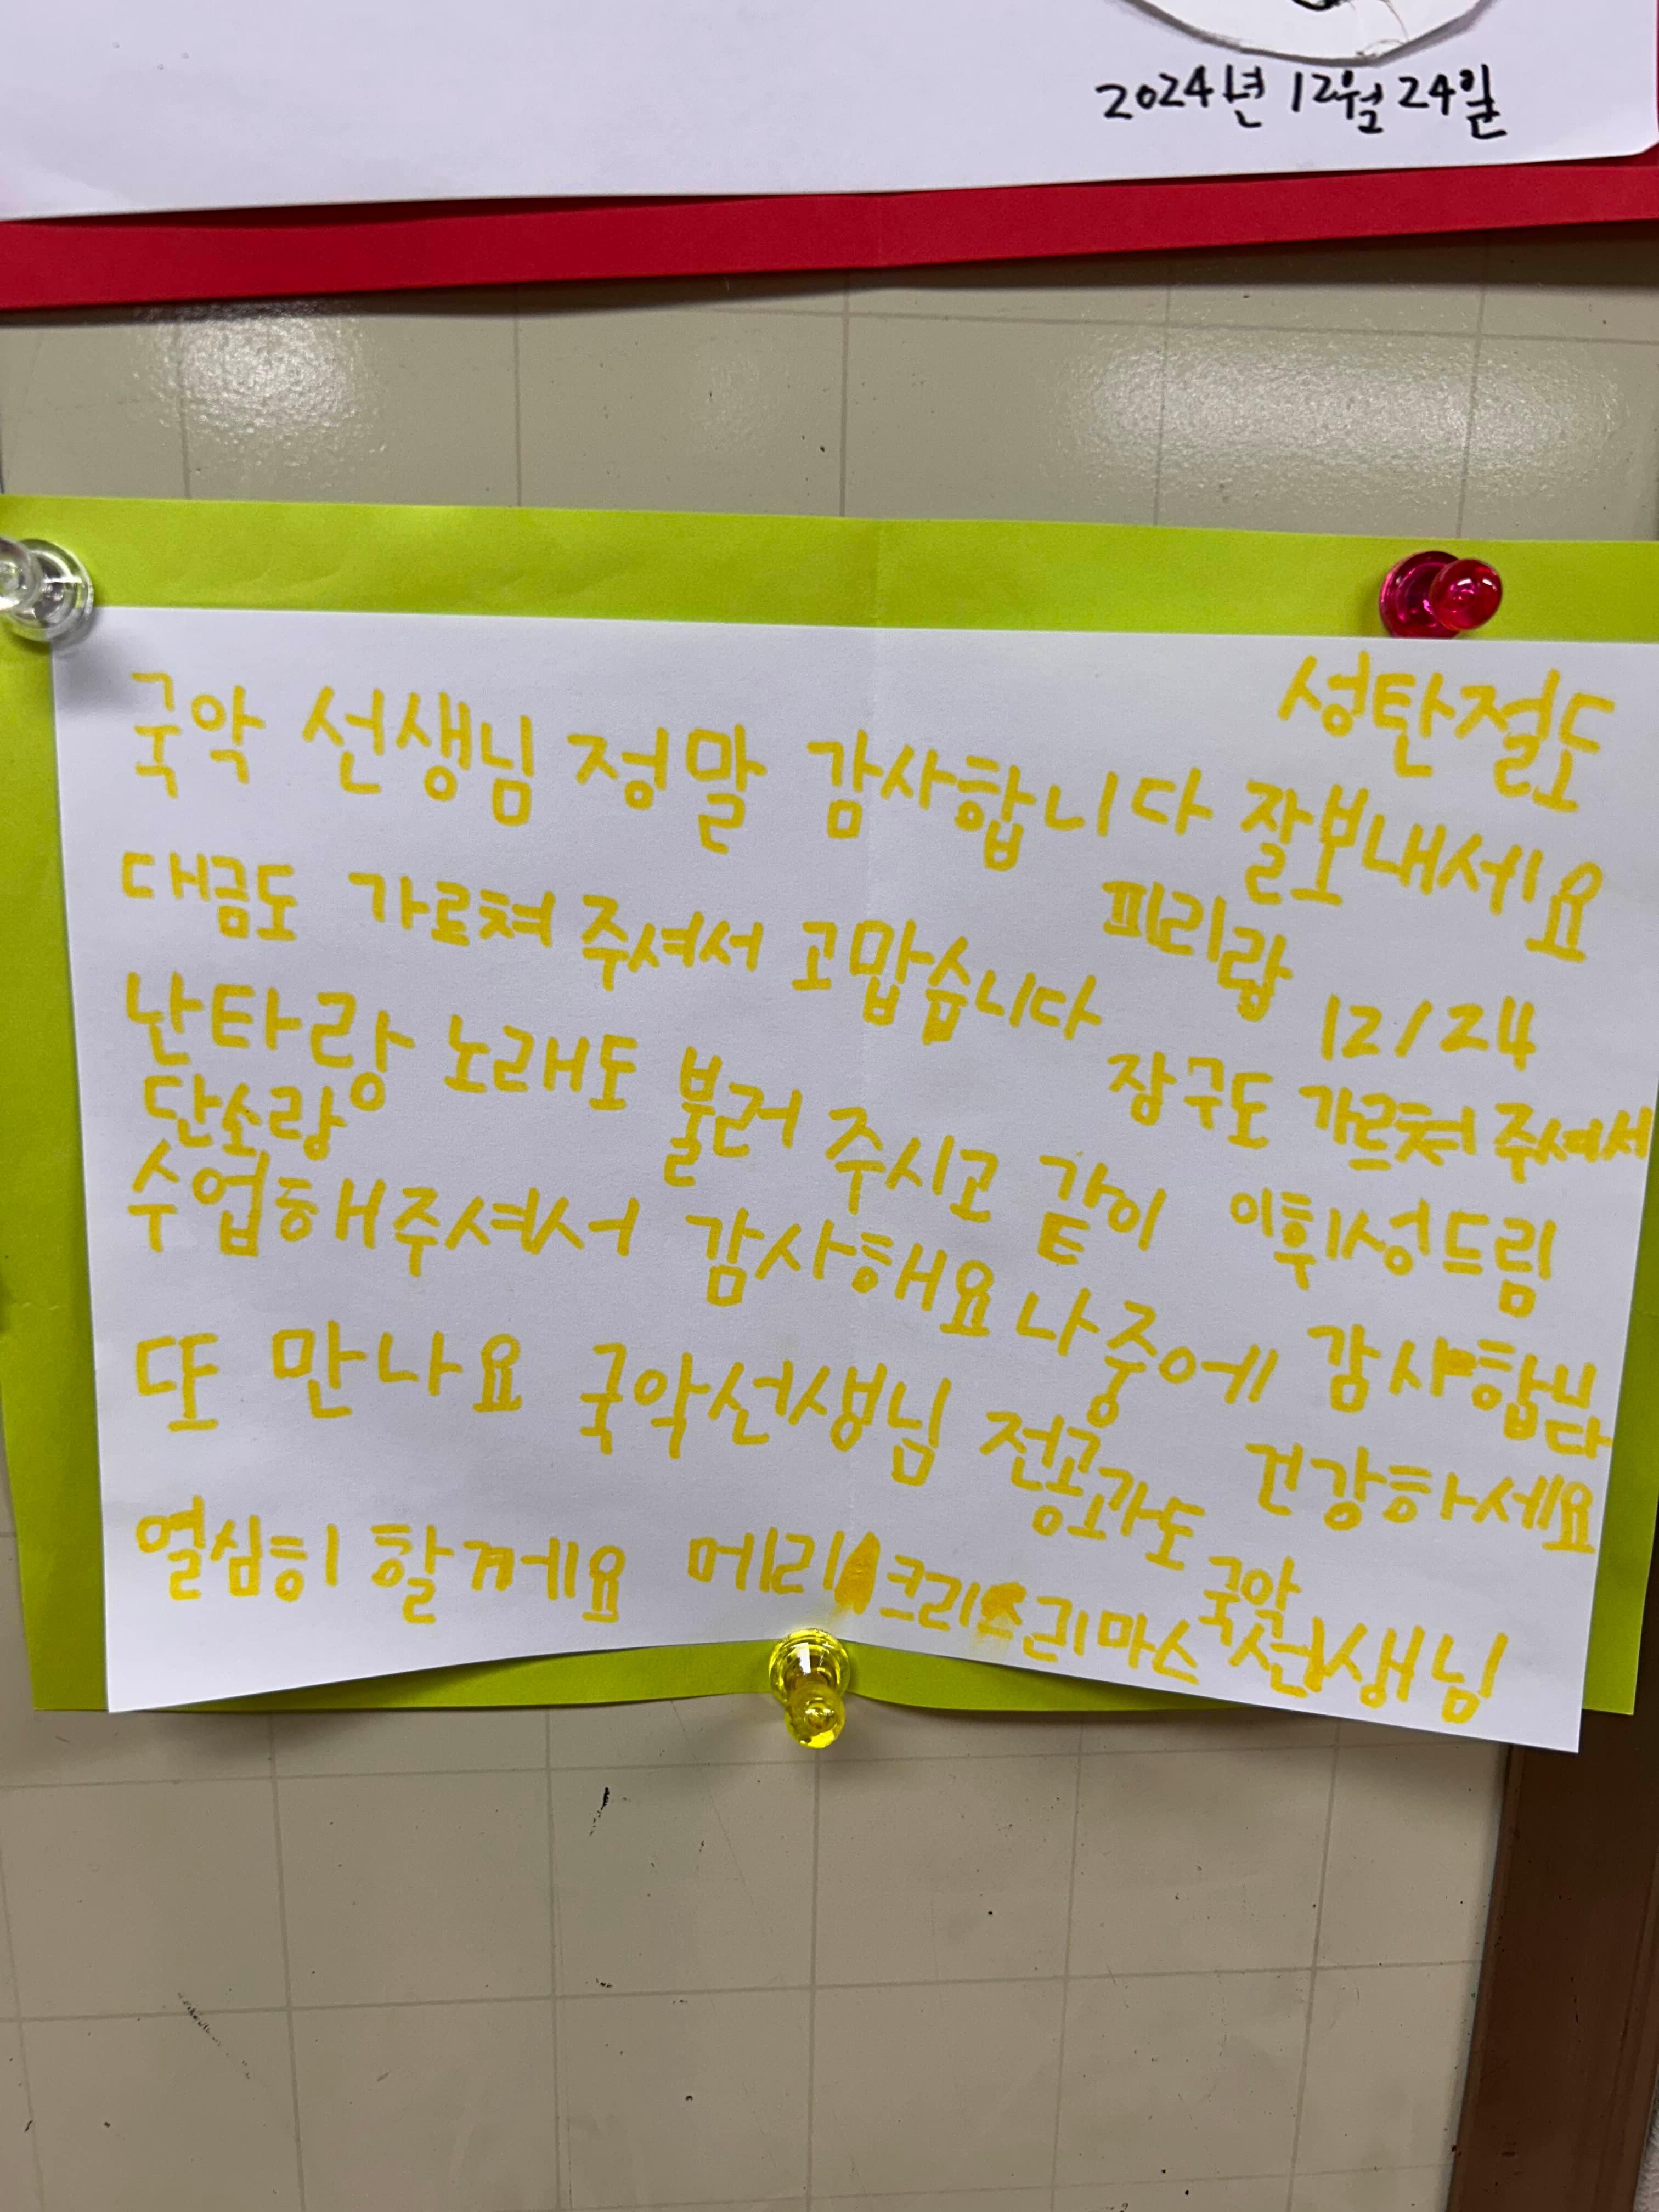 2024년 12월 24일
성탄절도
국악 선생님 정말 감사합니다 잘보내세요
대금도 가르쳐 주셔서 고맙습니다 피리랑
12/24
난타랑 노래도 불러 주시고 같이 장구도 가르쳐 주셔서
단소랑
수업해주셔서 감사해요 나중에 이휘성드림
감사합니다
또 만나요 국악선생님 전공과도 건강하세요
열심히 할께요 메리 크리스리마스 국악
선생님